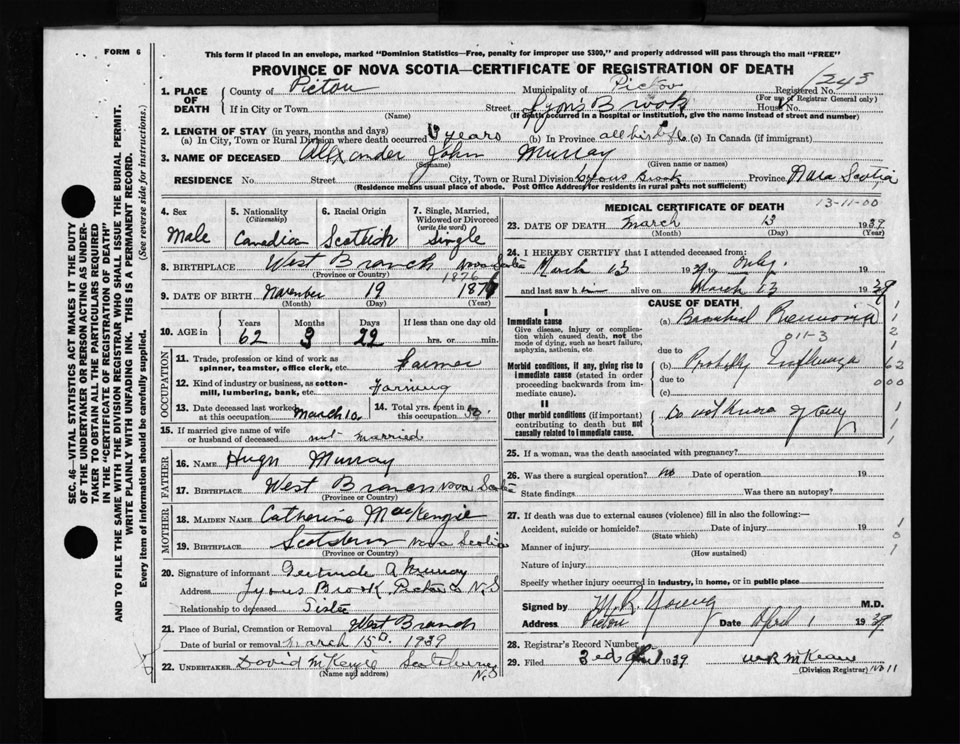 FORM 6
This form if placed in an envelope, marked "Dominion Statistics—Free, penalty for improper use $300," and properly addressed will pass through the mail "FREE"
PROVINCE OF NOVA SCOTIA—CERTIFICATE OF REGISTRATION OF DEATH
1. PLACE OF DEATH County of Pictou Municipality of Pictou Registered No. 1243
(For use of Registrar General only)
If in City or Town Street Lyons Brook House No.
(Name) (If death occurred in a hospital or institution, give the name instead of street and number)
2. LENGTH OF STAY (in years, months and days)
(a) In City, Town or Rural Division where death occurred years (b) In Province all his life (c) In Canada (if immigrant)
3. NAME OF DECEASED Alexander John Murray
(Surname) (Given name or names)
RESIDENCE No. Street City, Town or Rural Division Lyons Brook Province Nova Scotia
(Residence means usual place of abode. Post Office Address for residents in rural parts not sufficient)
4. Sex Male
5. Nationality (Citizenship) Canadian
6. Racial Origin Scottish
7. Single, Married, Widowed or Divorced (write the word) Single
8. BIRTHPLACE West Branch Nova Scotia
(Province or Country)
1876
9. DATE OF BIRTH November 19 187
(Month) (Day) (Year)
10. AGE in Years Months Days If less than one day
62 3 22 hrs. or min.
OCCUPATION
11. Trade, profession or kind of work as spinner, teamster, office clerk, etc. Farmer
12. Kind of industry or business, as cotton-mill, lumbering, bank, etc. Farming
13. Date deceased last worked at this occupation March 10
14. Total yrs. spent in this occupation
15. If married give name of wife or husband of deceased not married
FATHER
16. NAME Hugh Murray
17. BIRTHPLACE West Branch Nova Scotia
(Province or Country)
MOTHER
18. MAIDEN NAME Catherine MacKenzie
19. BIRTHPLACE Scotsburn Nova Scotia
(Province or Country)
20. Signature of informant Gertrude A Murray
Address Lyons Brook Pictou Co N.S
Relationship to deceased Sister
21. Place of Burial, Cremation or Removal West Branch
Date of burial or removal March 15th 1939
22. UNDERTAKER David McKenzie Scotsburn N.S
(Name and address)
MEDICAL CERTIFICATE OF DEATH
13-11-00
23. DATE OF DEATH March 13 1939
(Month) (Day) (Year)
24. I HEREBY CERTIFY that I attended deceased from:
March 13 1939 to only 19
and last saw him alive on March 13 1939
CAUSE OF DEATH
I
Immediate cause (a) Bronchial Pneumonia
Give disease, injury or complication which caused death, not the mode of dying, such as heart failure, asphyxia, asthenia, etc.
011-3
due to
Morbid conditions, if any, giving rise to immediate cause (stated in order proceeding backwards from immediate cause). (b) Probably Influenza
due to
(c)
II
Other morbid conditions (if important) contributing to death but not causally related to immediate cause. Do not know of any
1
1
2
1
62
000
1
1
1
25. If a woman, was the death associated with pregnancy?
26. Was there a surgical operation? no Date of operation 19
State findings Was there an autopsy?
27. If death was due to external causes (violence) fill in also the following:—
Accident, suicide or homicide? Date of injury 19
(State which)
Manner of injury
(How sustained)
Nature of injury
1
0
1
Specify whether injury occurred in industry, in home, or in public place
Signed by M. R. Young M.D.
Address Pictou Date April 1 1939
28. Registrar's Record Number
29. Filed 3rd April 1939 W.R. McKean
(Division Registrar) 11
SEC. 46—VITAL STATISTICS ACT MAKES IT THE DUTY
OF THE UNDERTAKER OR PERSON ACTING AS UNDER-
TAKER TO OBTAIN ALL THE PARTICULARS REQUIRED
IN THE "CERTIFICATE OF REGISTRATION OF DEATH"
AND TO FILE THE SAME WITH THE DIVISION REGISTRAR WHO SHALL ISSUE THE BURIAL PERMIT.
WRITE PLAINLY WITH UNFADING INK. THIS IS A PERMANENT RECORD.
Every item of information should be carefully supplied. (See reverse side for instructions.)